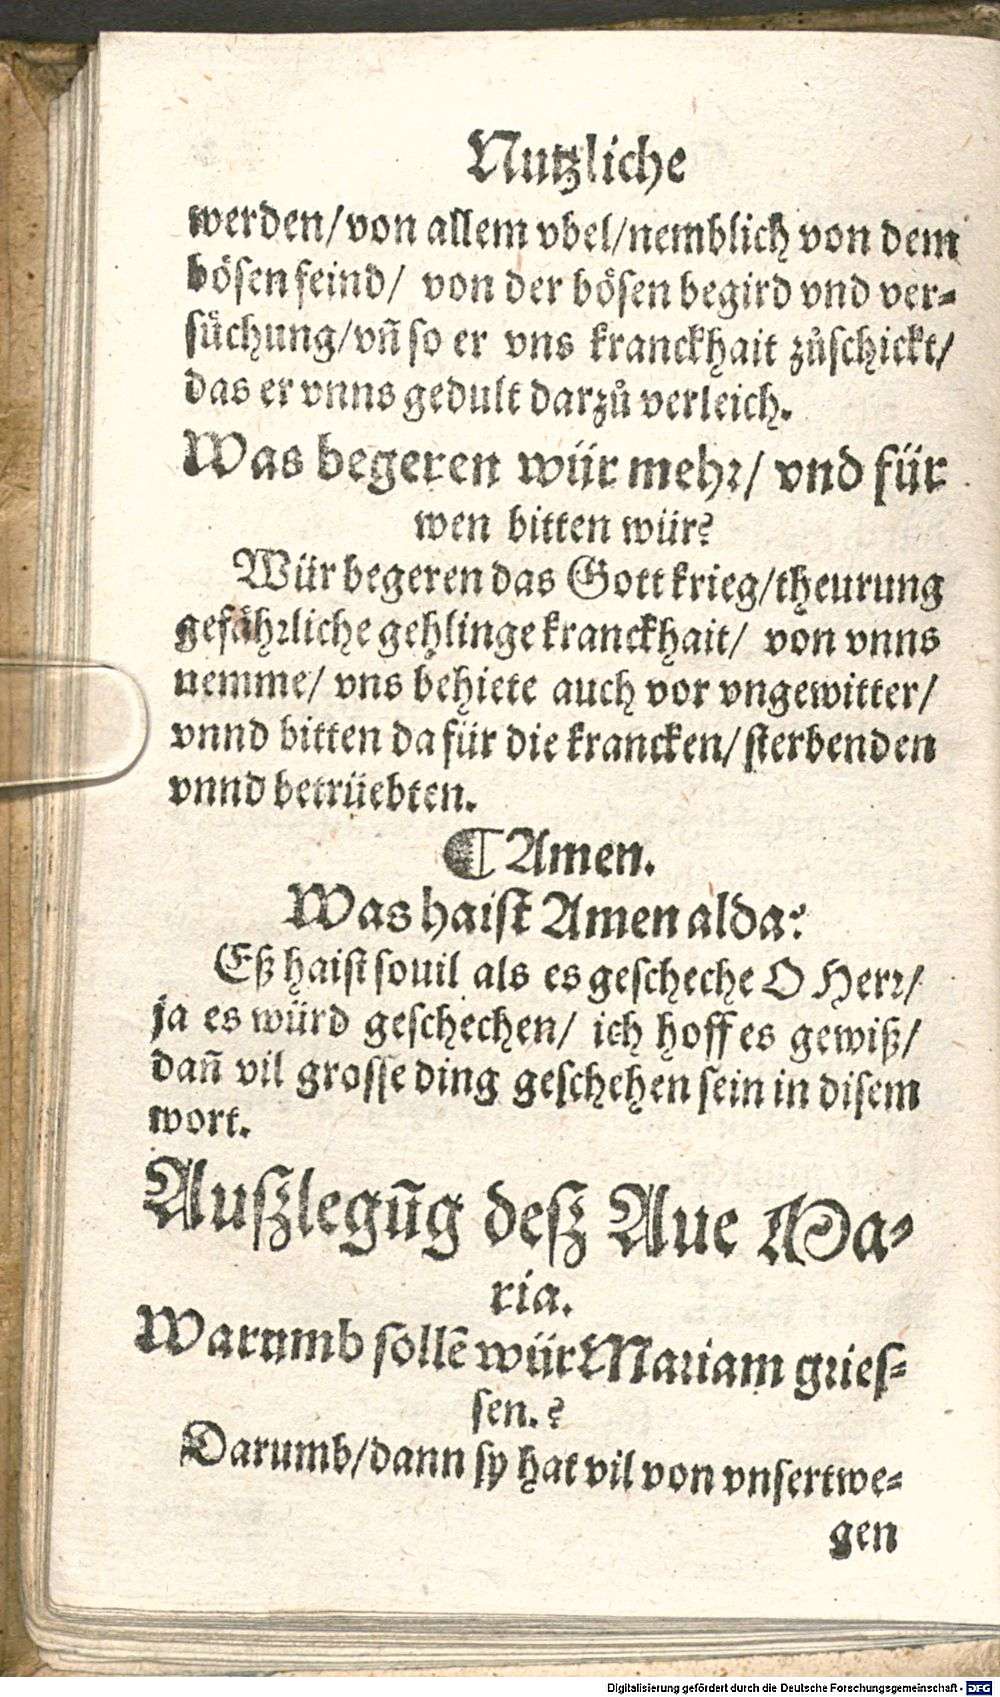 Nutzliche
werden/von allem vbel/nemblich von dem
bösen feind/ von der bösen begird vnd ver-
suͦchung/vñ so er vns kranckhait zuͦschickt/
das er vnns gedult darzuͦ verleich.
Was begeren wür mehr/ vnd für
wen bitten wür?
Wür begeren das Gott krieg/theurung
gefährliche gehlinge kranckhait/ von vnns
nemme/ vns behiete auch vor vngewitter/
vnnd bitten da für die krancken/ sterbenden
vnnd betrüebten.
¶ Amen.
Was haist Amen alda?
Eß haist souil als es gescheche O Herr/
ja es würd geschechen/ ich hoff es gewiß/
dañ vil grosse ding geschehen sein in disem
wort.
Außlegūg deß Aue Ma-
ria.
Warumb sollē wür Mariam gries-
sen.?
Darumb/dann sy hat vil von vnsertwe-
gen
Digitalisierung gefördert durch die Deutsche Forschungsgemeinschaft - DFG